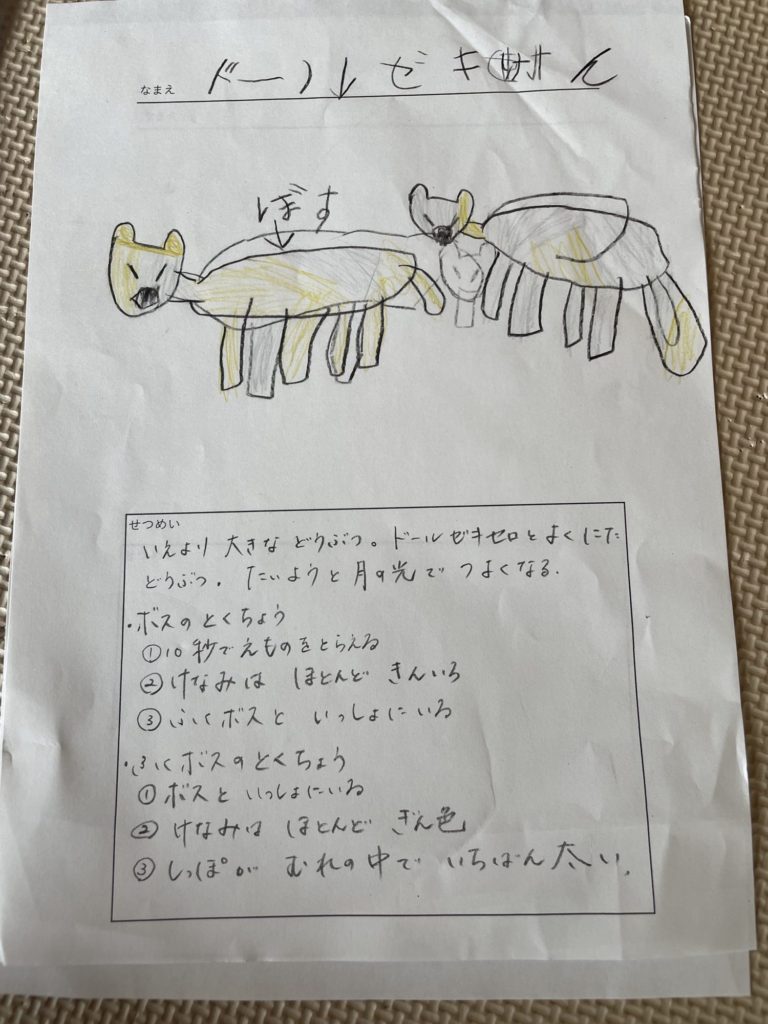 なまえ ドール ゼキ ん
ぼす
せつめい
いえより 大きな どうぶつ。ドールゼキゼロと よくにた
どうぶつ. たいようと 月の光で つよくなる.
・ボスのとくちょう
①10秒でえものをとらえる
②けなみは ほとんど きんいろ
③ふくボスと いっしょにいる
・ふくボスのとくちょう
①ボスと いっしょにいる
②けなみは ほとんど ぎん色
③しっぽが むれの中で いちばん太い.